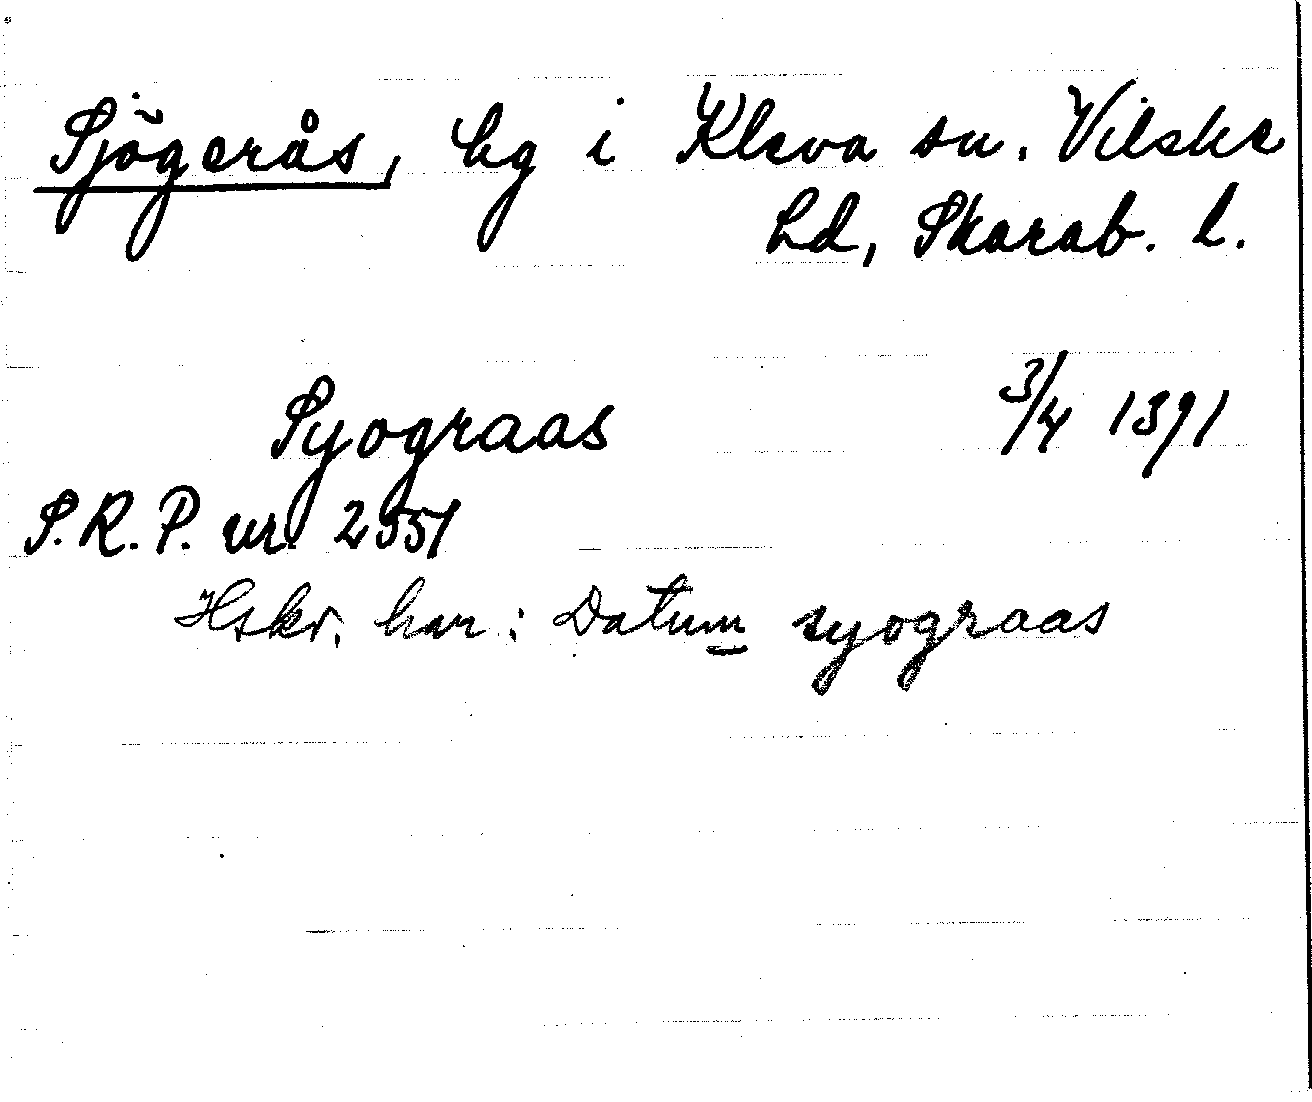 Sjögerås, hg i Kleva sn. Vilske
hd, Skarab. l.
Syograas 3/4 1391
S.R.P. nr. 2551
Hskr. har: Datum syograas